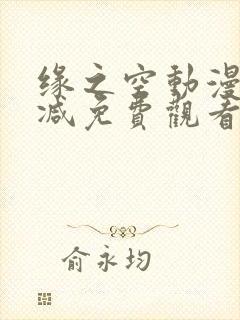 缘之空動漫
减免費觀看
俞永均